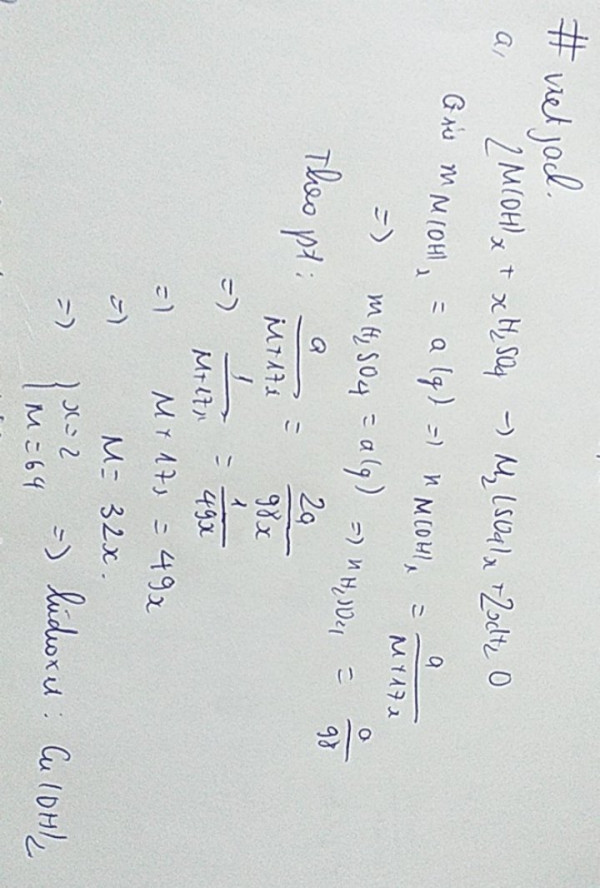 # vietjack.
a, 2M(OH)x + xH2SO4 → M2(SO4)x + 2xH2O
Giả m M(OH)x = a(g) => n M(OH)x = a/(M+17x)
=> m H2SO4 = a(g) => n H2SO4 = a/98
Theo pt: a/(M+17x) = 2a/98x
=> 1/(M+17x) = 1/49x
=> M + 17x = 49x
=> M = 32x.
=> { x=2 M=64 => hidroxit: Cu(OH)2